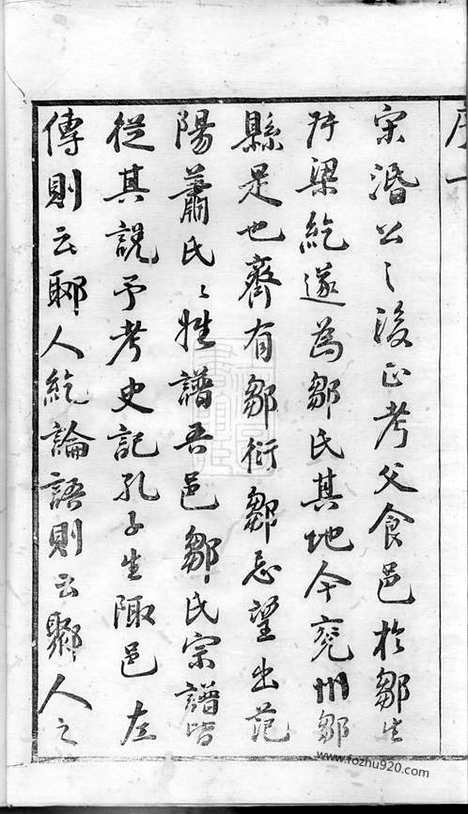 序一
宋湣公之後正考父食邑於鄒生
叔梁紇遂為鄒氏其地今兗州鄒
縣是也齊有鄒衍鄒忌望出范
陽蕭氏〻姓譜吾邑鄒氏宗譜皆
從其說予考史記孔子生陬邑左
傳則云郰人紇論語則云鄹人之
www.fozhu920.com